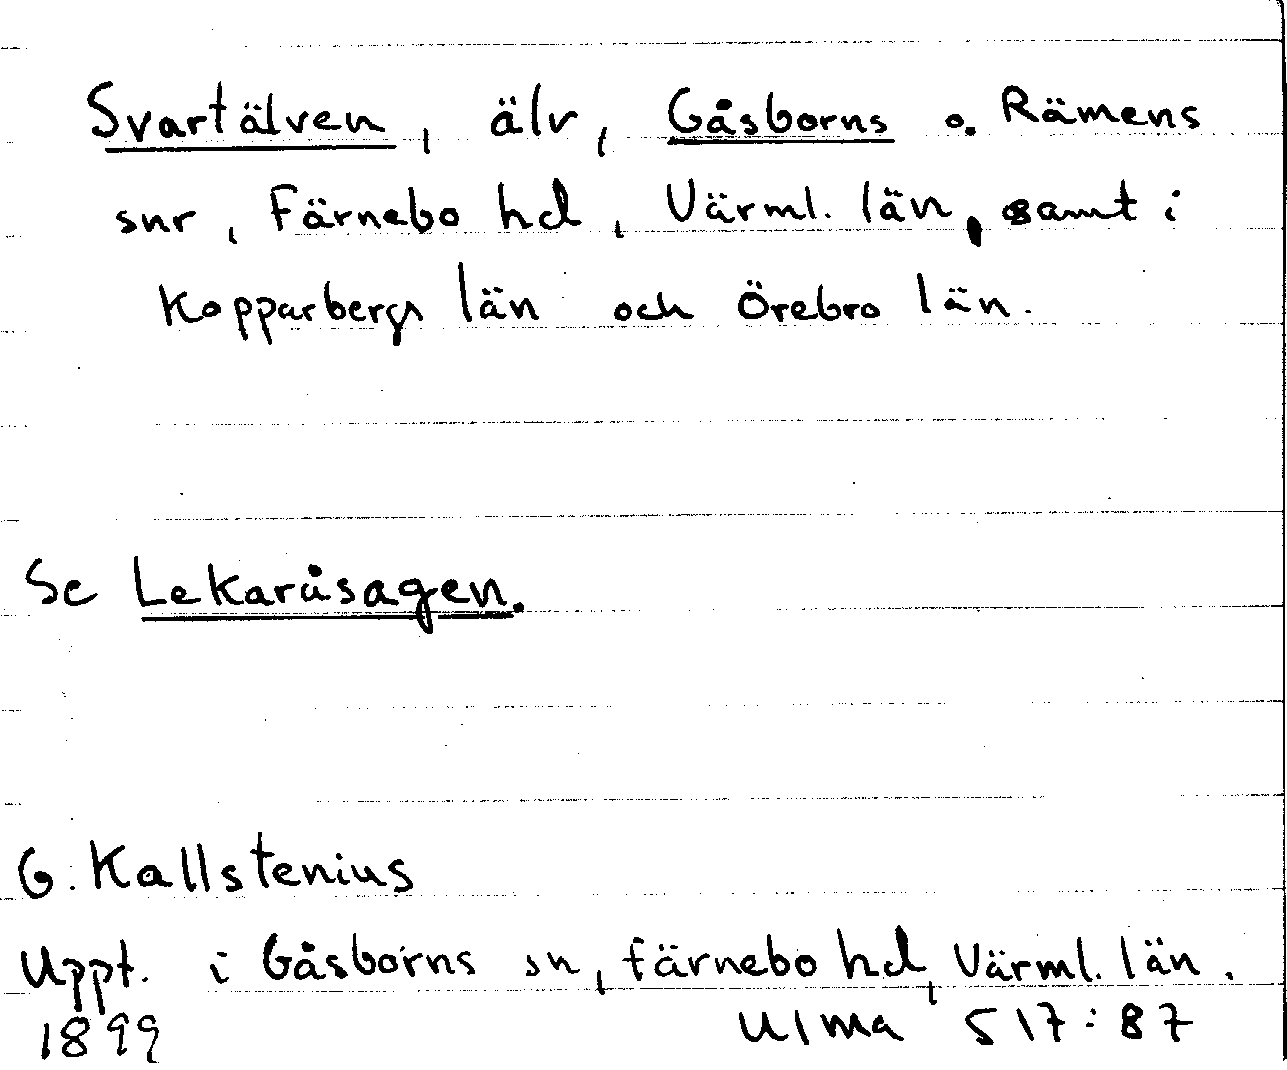 Svartälven, älv, Gåsborns o. Rämens
snr, Färnebo hd, Värml. län, samt i
Kopparbergs län och Örebro län.
Se Lekaråsagen.
G. Kallstenius
Uppt. i Gåsborns sn, Färnebo hd, Värml. län.
1899 Ulma 517:87